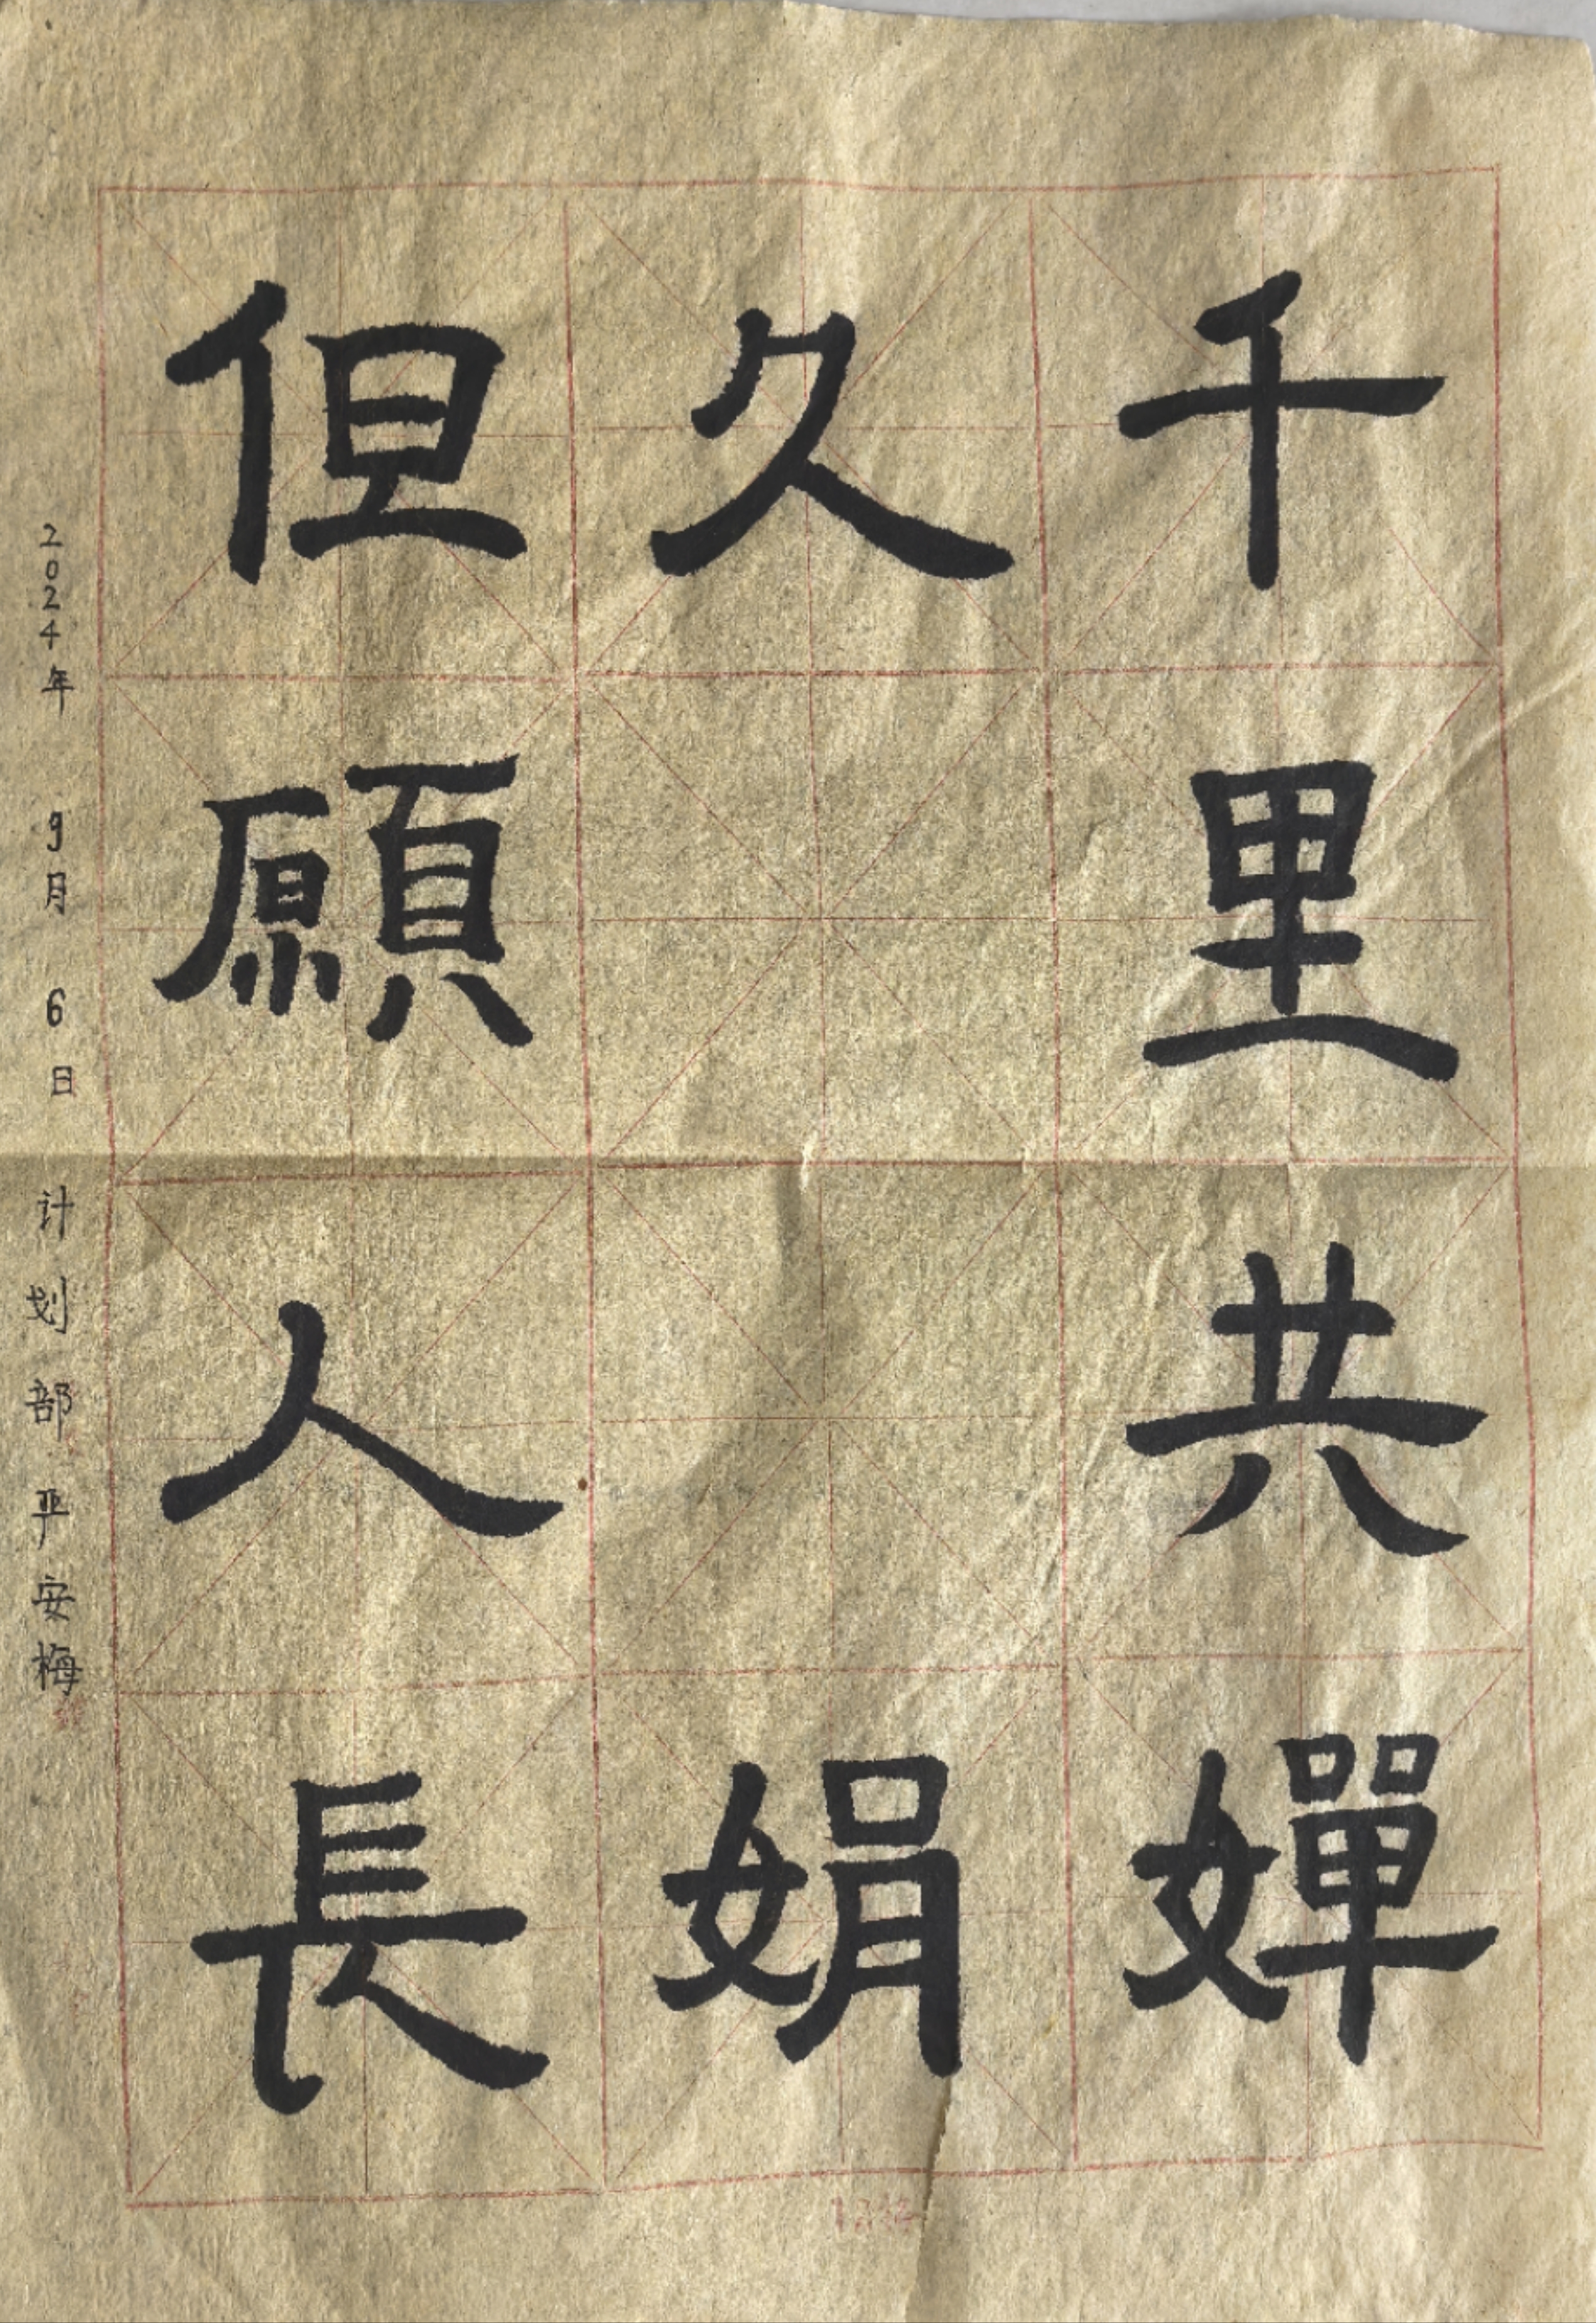 但願人長
久
千里共嬋
娟
2024年 9月 6日 计划部 严安梅